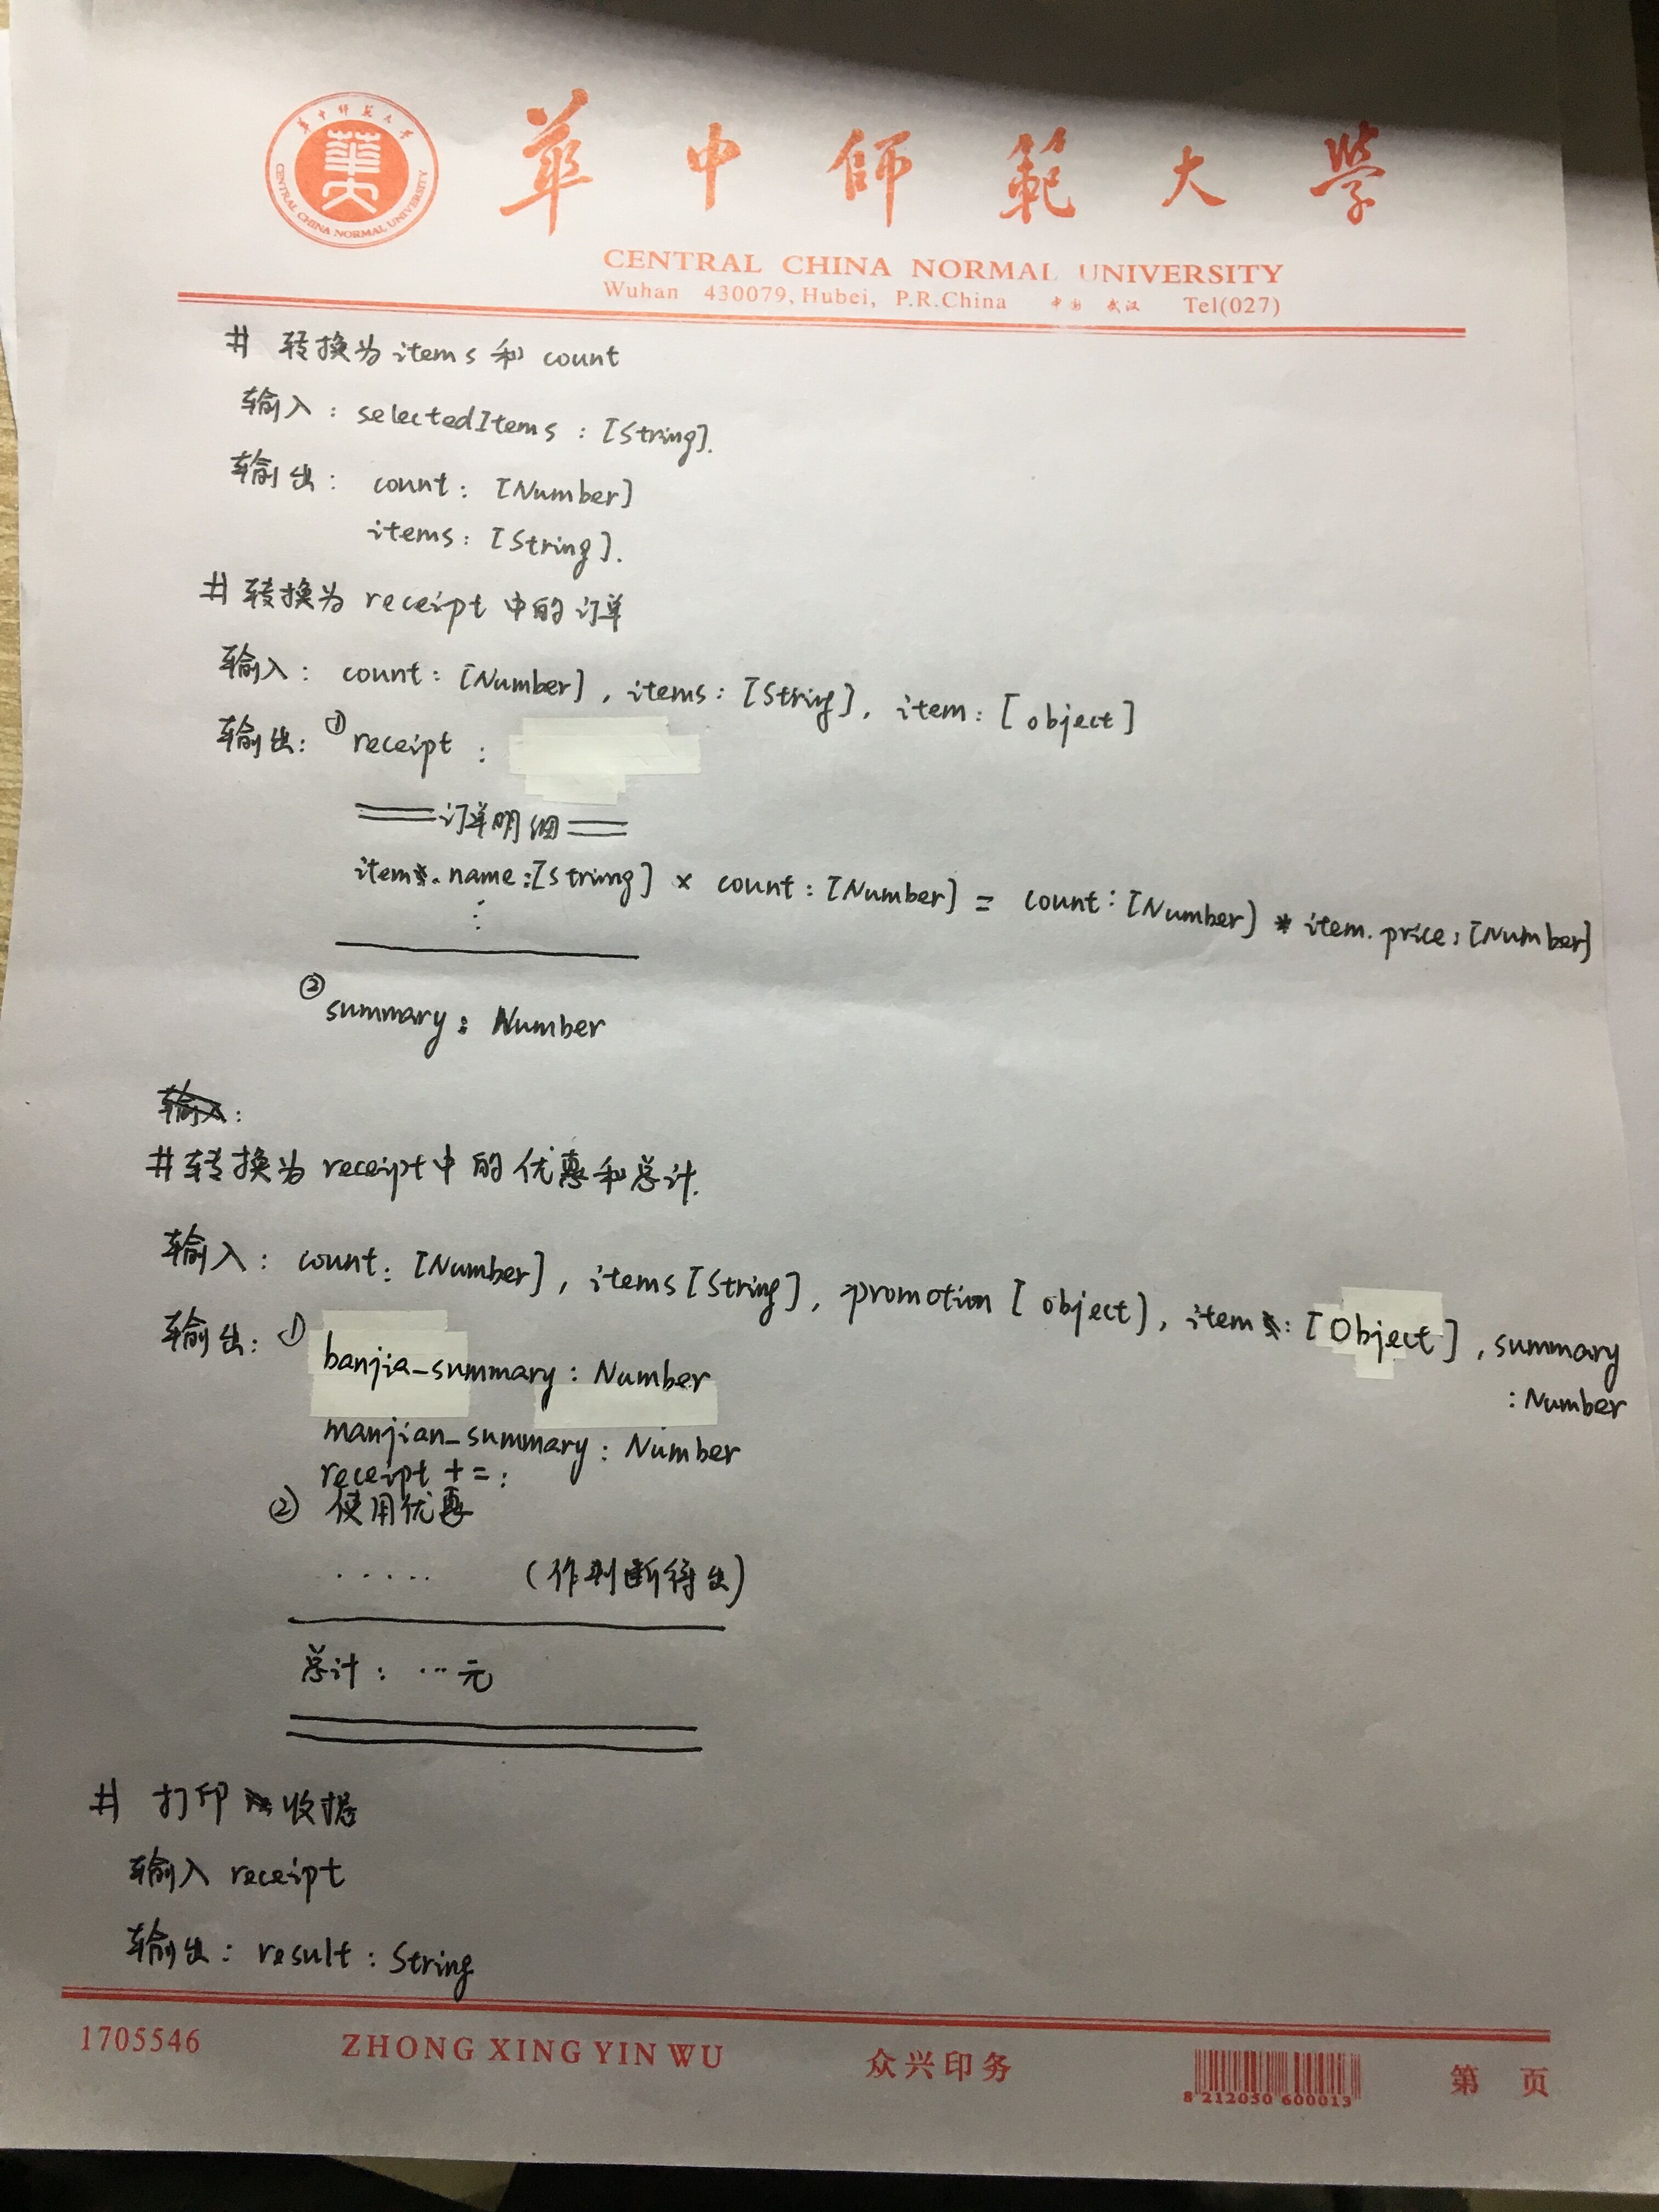 華中師範大學
CENTRAL CHINA NORMAL UNIVERSITY
華中師範大學
CENTRAL CHINA NORMAL UNIVERSITY
Wuhan 430079, Hubei, P.R.China 中国 武汉 Tel(027)
# 转换为items和 count
输入: selectedItems : [String].
输出: count: [Number]
items: [String].
# 转换为 receipt 中的订单
输入: count: [Number], items: [String], item: [object]
输出: ① receipt :
==订单明细==
item. name:[String] × count: [Number] = count: [Number] * item.price: [Number]
⋮
② summary: Number
输入:
# 转换为 receipt中的优惠和总计.
输入: count: [Number], items [String], promotion [object], item: [Object], summary
: Number
输出: ①
banjia_summary: Number
manjian_summary: Number
receipt +=:
② 使用优惠
..... (作判断得出)
总计: ...元
# 打印收据
输入 receipt
输出: result: String
1705546 ZHONG XING YIN WU 众兴印务 8 212050 600013 第 页